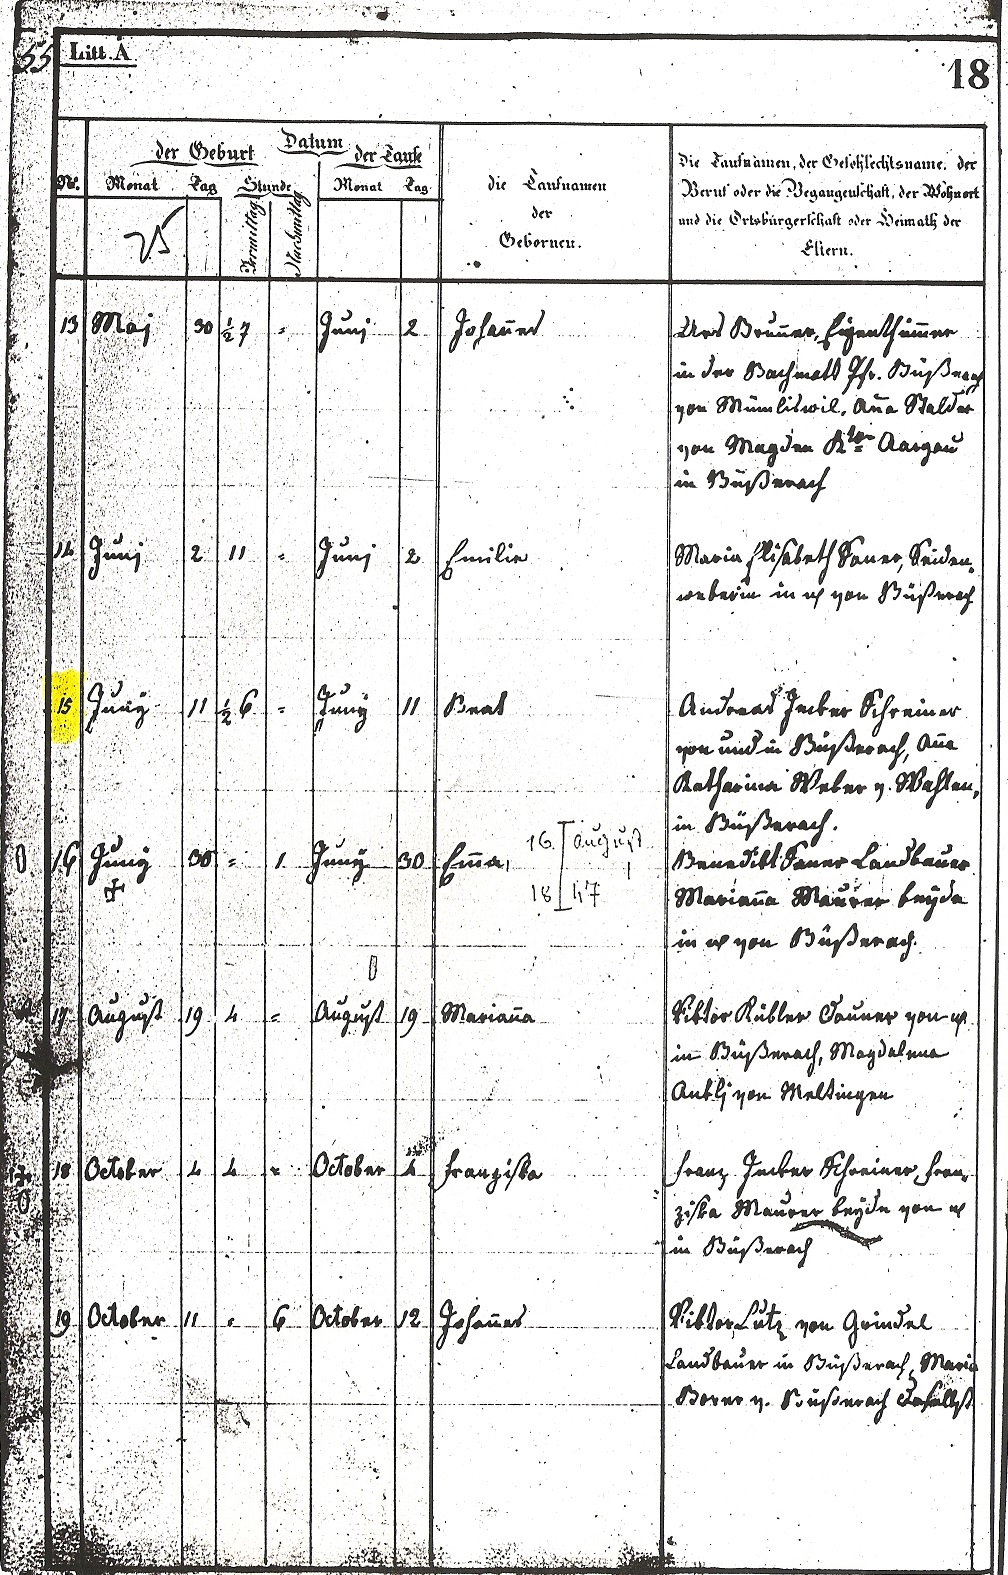 55 Litt. A
18
Datum
der Geburt der Taufe
Nr. Monat Tag Stunde Monat Tag
Vormittag Nachmittag
die Taufnamen
der
Gebornen.
Die Taufnamen, der Geschlechtsname, der
Beruf oder die Begangenschaft, der Wohnort
und die Ortsbürgerschaft oder Heimath der
Eltern.
13 Maj 30 ½7 " Junj 2 Johañes
Urs Bruñer, Eigenthümmer
in der Bachmatt Pfr. Büßerach
von Mümliswil, Aña Stalder
von Magden Kton Aargau
in Büßerach
14 Junj 2 11 " Junj 2 Emilie
Maria Elisabeth Saner, Seiden-
weberin in u von Büßerach
15 Junÿ 11 ½6 " Junÿ 11 Beat
Andreas Jecker Schreiner
von und in Büßerach, Aña
Katharina Weber v. Wahlen,
in Büßerach.
16 Junÿ 30 " 1 Junÿ 30 Em̃a,
16 August
18 47
Benedikt Saner Landbauer
Mariaña Maurer beyde
in u von Büßerach.
17 August 19 4 " August 19 Mariaña
Viktor Kübler Tauner von u
in Büßerach, Magdalena
von Meltingen
18 October 4 4 " October 4 Franziska
Franz Jecker Schreiner, Fran-
ziska Maurer beyde von u
in Büßerach
19 October 11 " 6 October 12 Johañes
Viktor Lutz von Grindel
Landbauer in Büßerach, Maria
Borer v. Büßerach daselbst